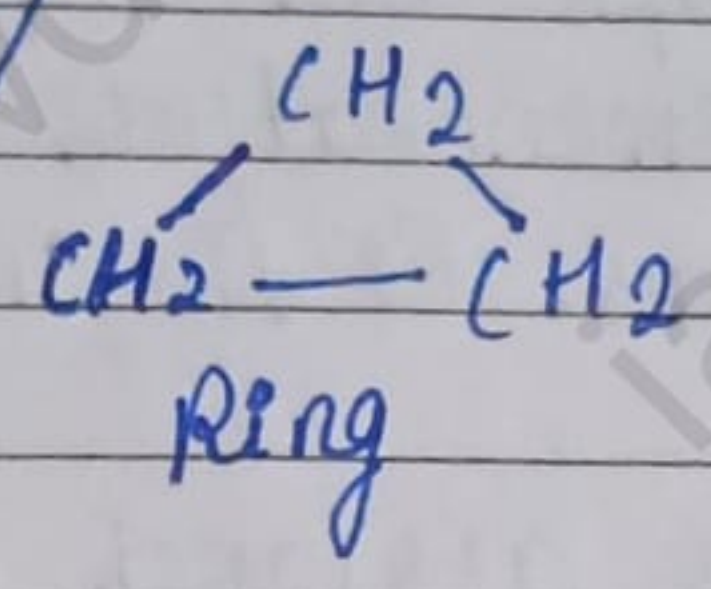 CH2
CH2 — CH2
Ring